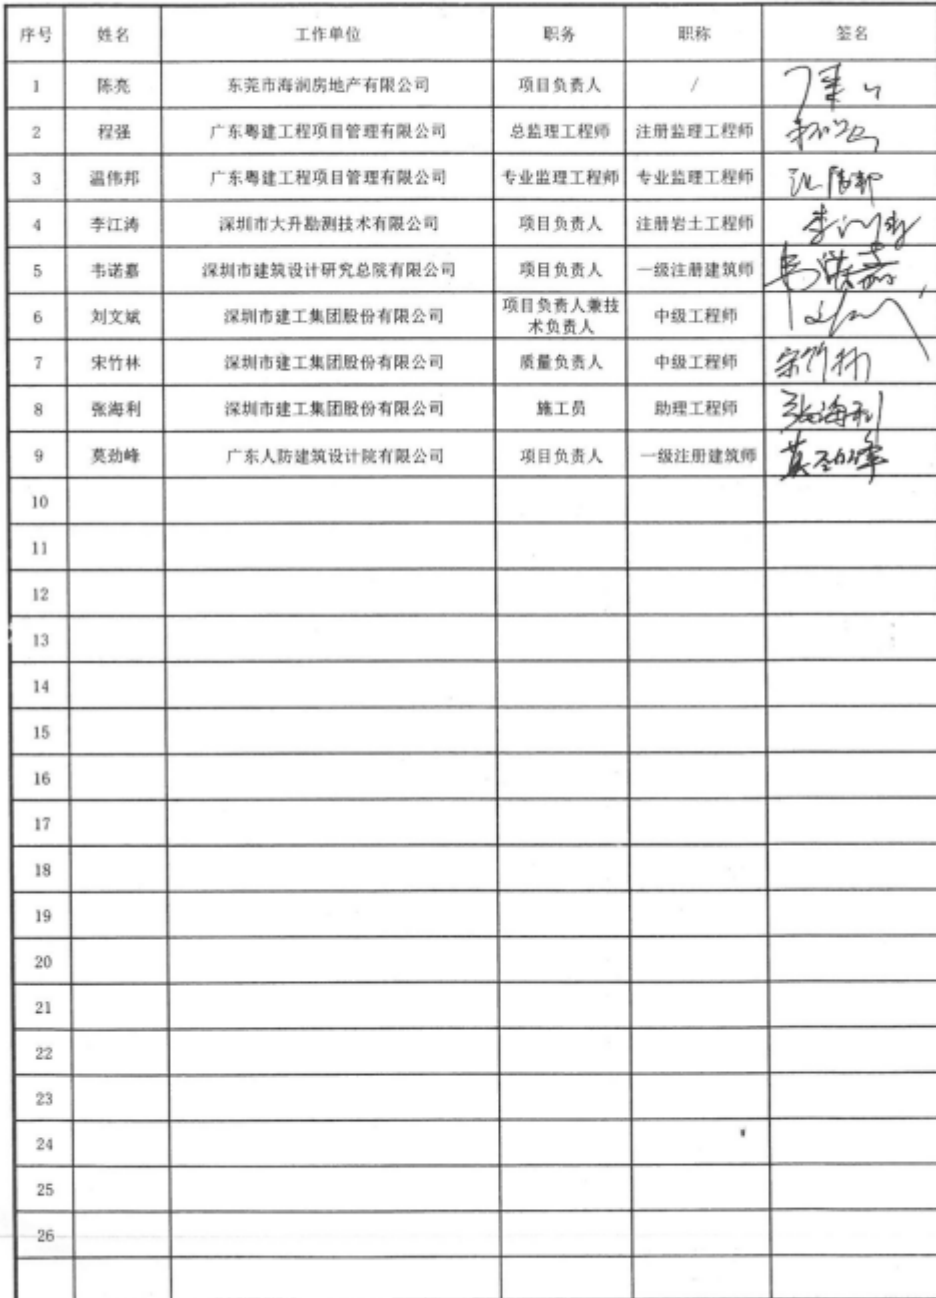 序号 姓名 工作单位 职务 职称 签名
1 陈亮 东莞市海润房地产有限公司 项目负责人 /
2 程强 广东粤建工程项目管理有限公司 总监理工程师 注册监理工程师
3 温伟邦 广东粤建工程项目管理有限公司 专业监理工程师 专业监理工程师
4 李江涛 深圳市大升勘测技术有限公司 项目负责人 注册岩土工程师 李江涛
5 韦诺嘉 深圳市建筑设计研究总院有限公司 项目负责人 一级注册建筑师 韦诺嘉
6 刘文斌 深圳市建工集团股份有限公司 项目负责人兼技术负责人 中级工程师
7 宋竹林 深圳市建工集团股份有限公司 质量负责人 中级工程师 宋竹林
8 张海利 深圳市建工集团股份有限公司 施工员 助理工程师 张海利
9 莫劲峰 广东人防建筑设计院有限公司 项目负责人 一级注册建筑师 莫劲峰
10
11
12
13
14
15
16
17
18
19
20
21
22
23
24
25
26